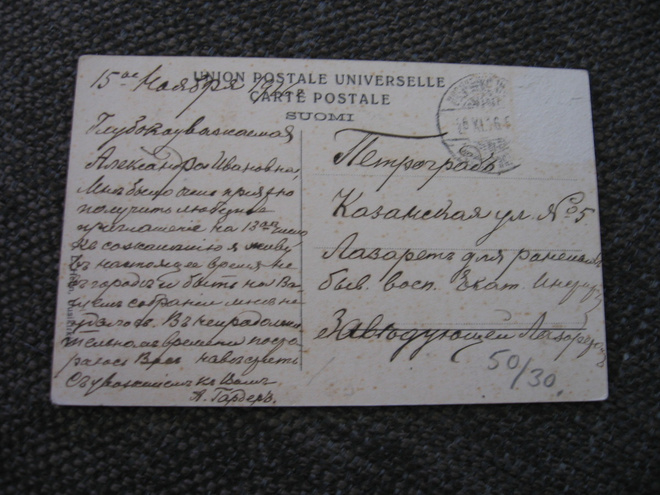 15ое Ноября 1916
UNION POSTALE UNIVERSELLE
CARTE POSTALE
SUOMI
Глубокоуважаемая
Александра Ивановна,
Мне было очень приятно
получить любезное
приглашение на 13ое
Къ сожалению я живу
въ настоящее время не
въ городѣ и быть на Ва
шемъ собрании мне не
удалось. Въ непродолжи
тельномъ времени поста
раюсь Васъ навестить
Съ уважениемъ къ Вамъ
А. Гардеръ.
Петроградъ
Казанская ул. № 5
Лазаретъ для раненыхъ
быв. восп. Екат.
Заведующей Лазаретомъ
50/30